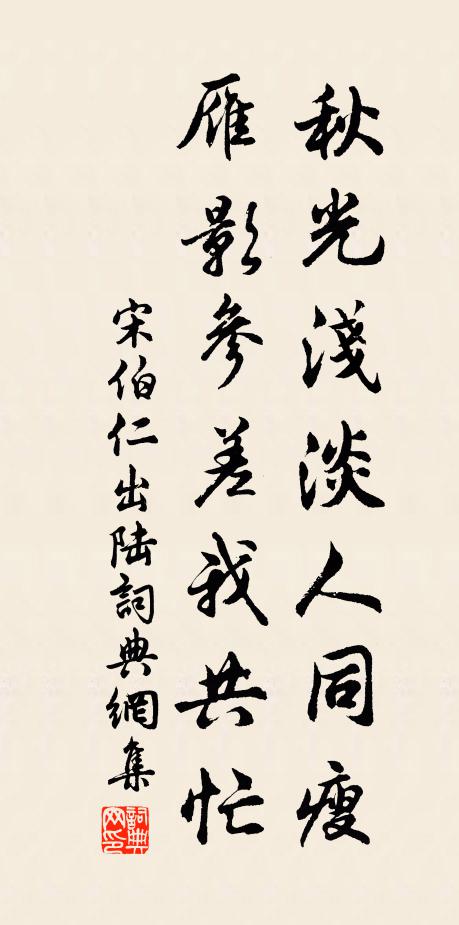 秋光淺淡人同瘦
雁影參差我共忙
宋伯仁出陆詞典網集
詞典网印